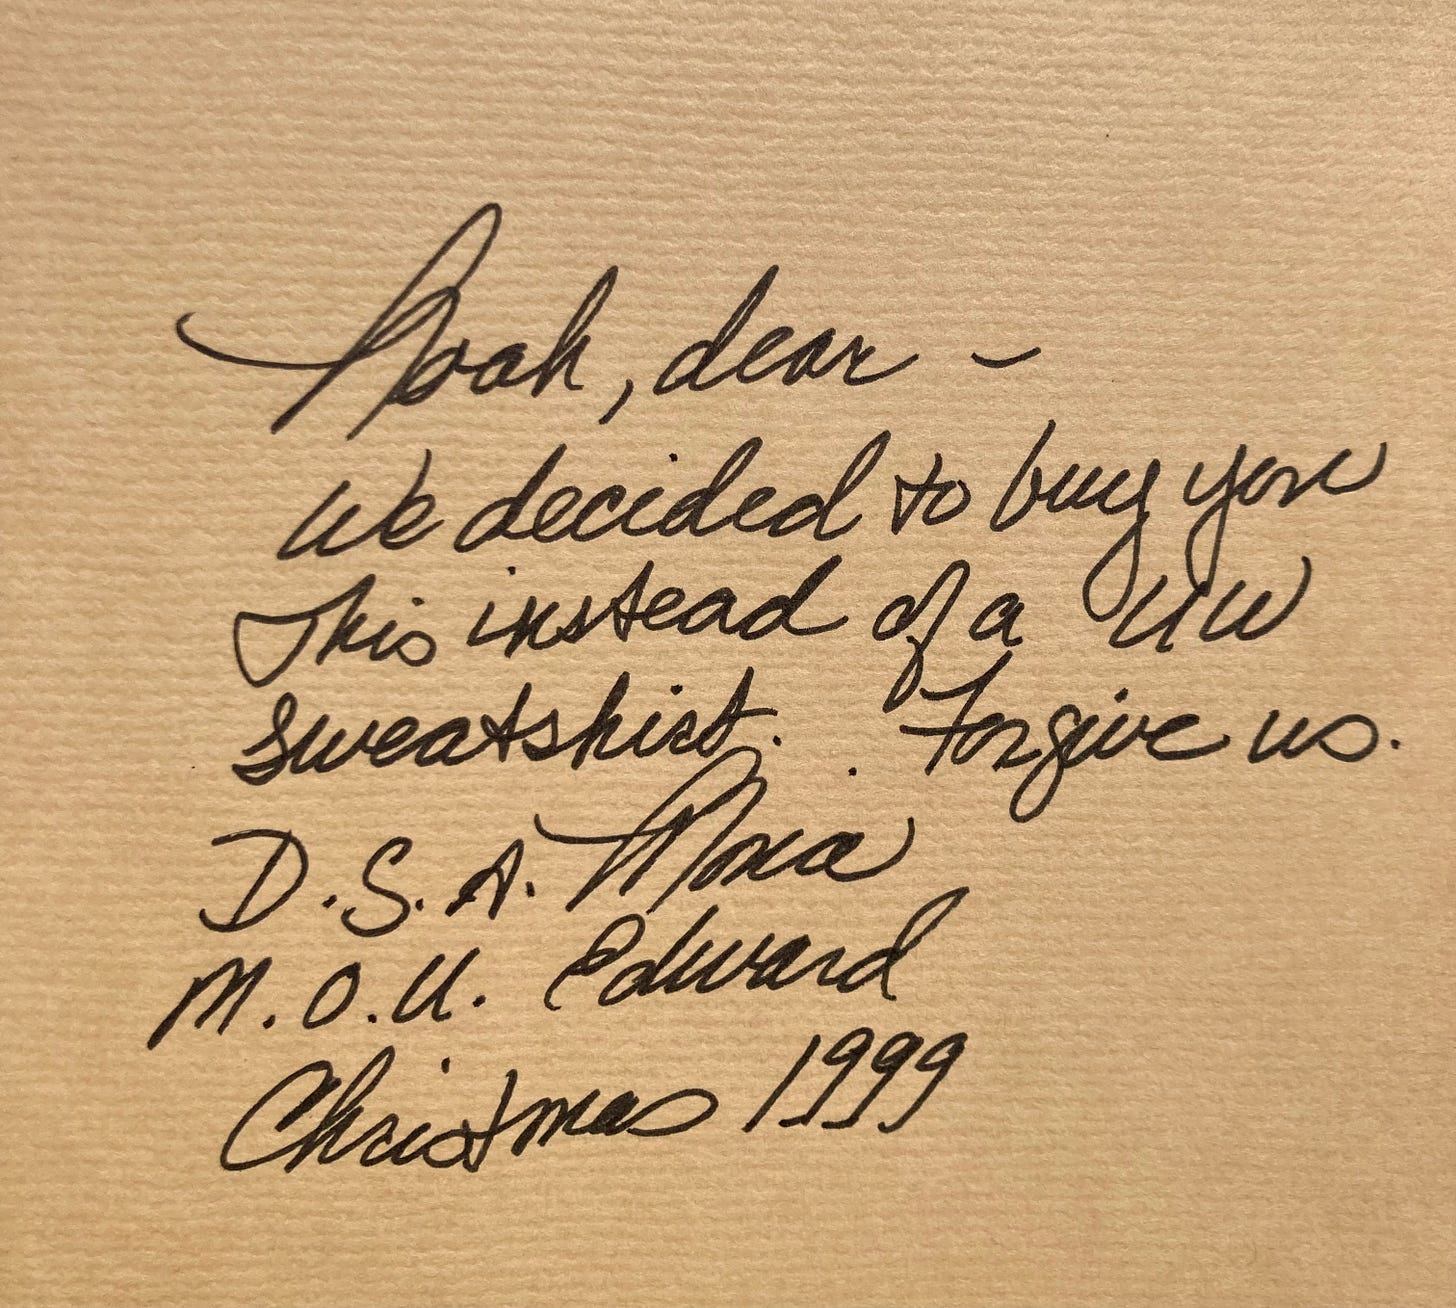 Noah, dear –
We decided to buy you
this instead of a UW
sweatshirt. Forgive us.
D.S.A. Nona
M.O.U. Edward
Christmas 1999